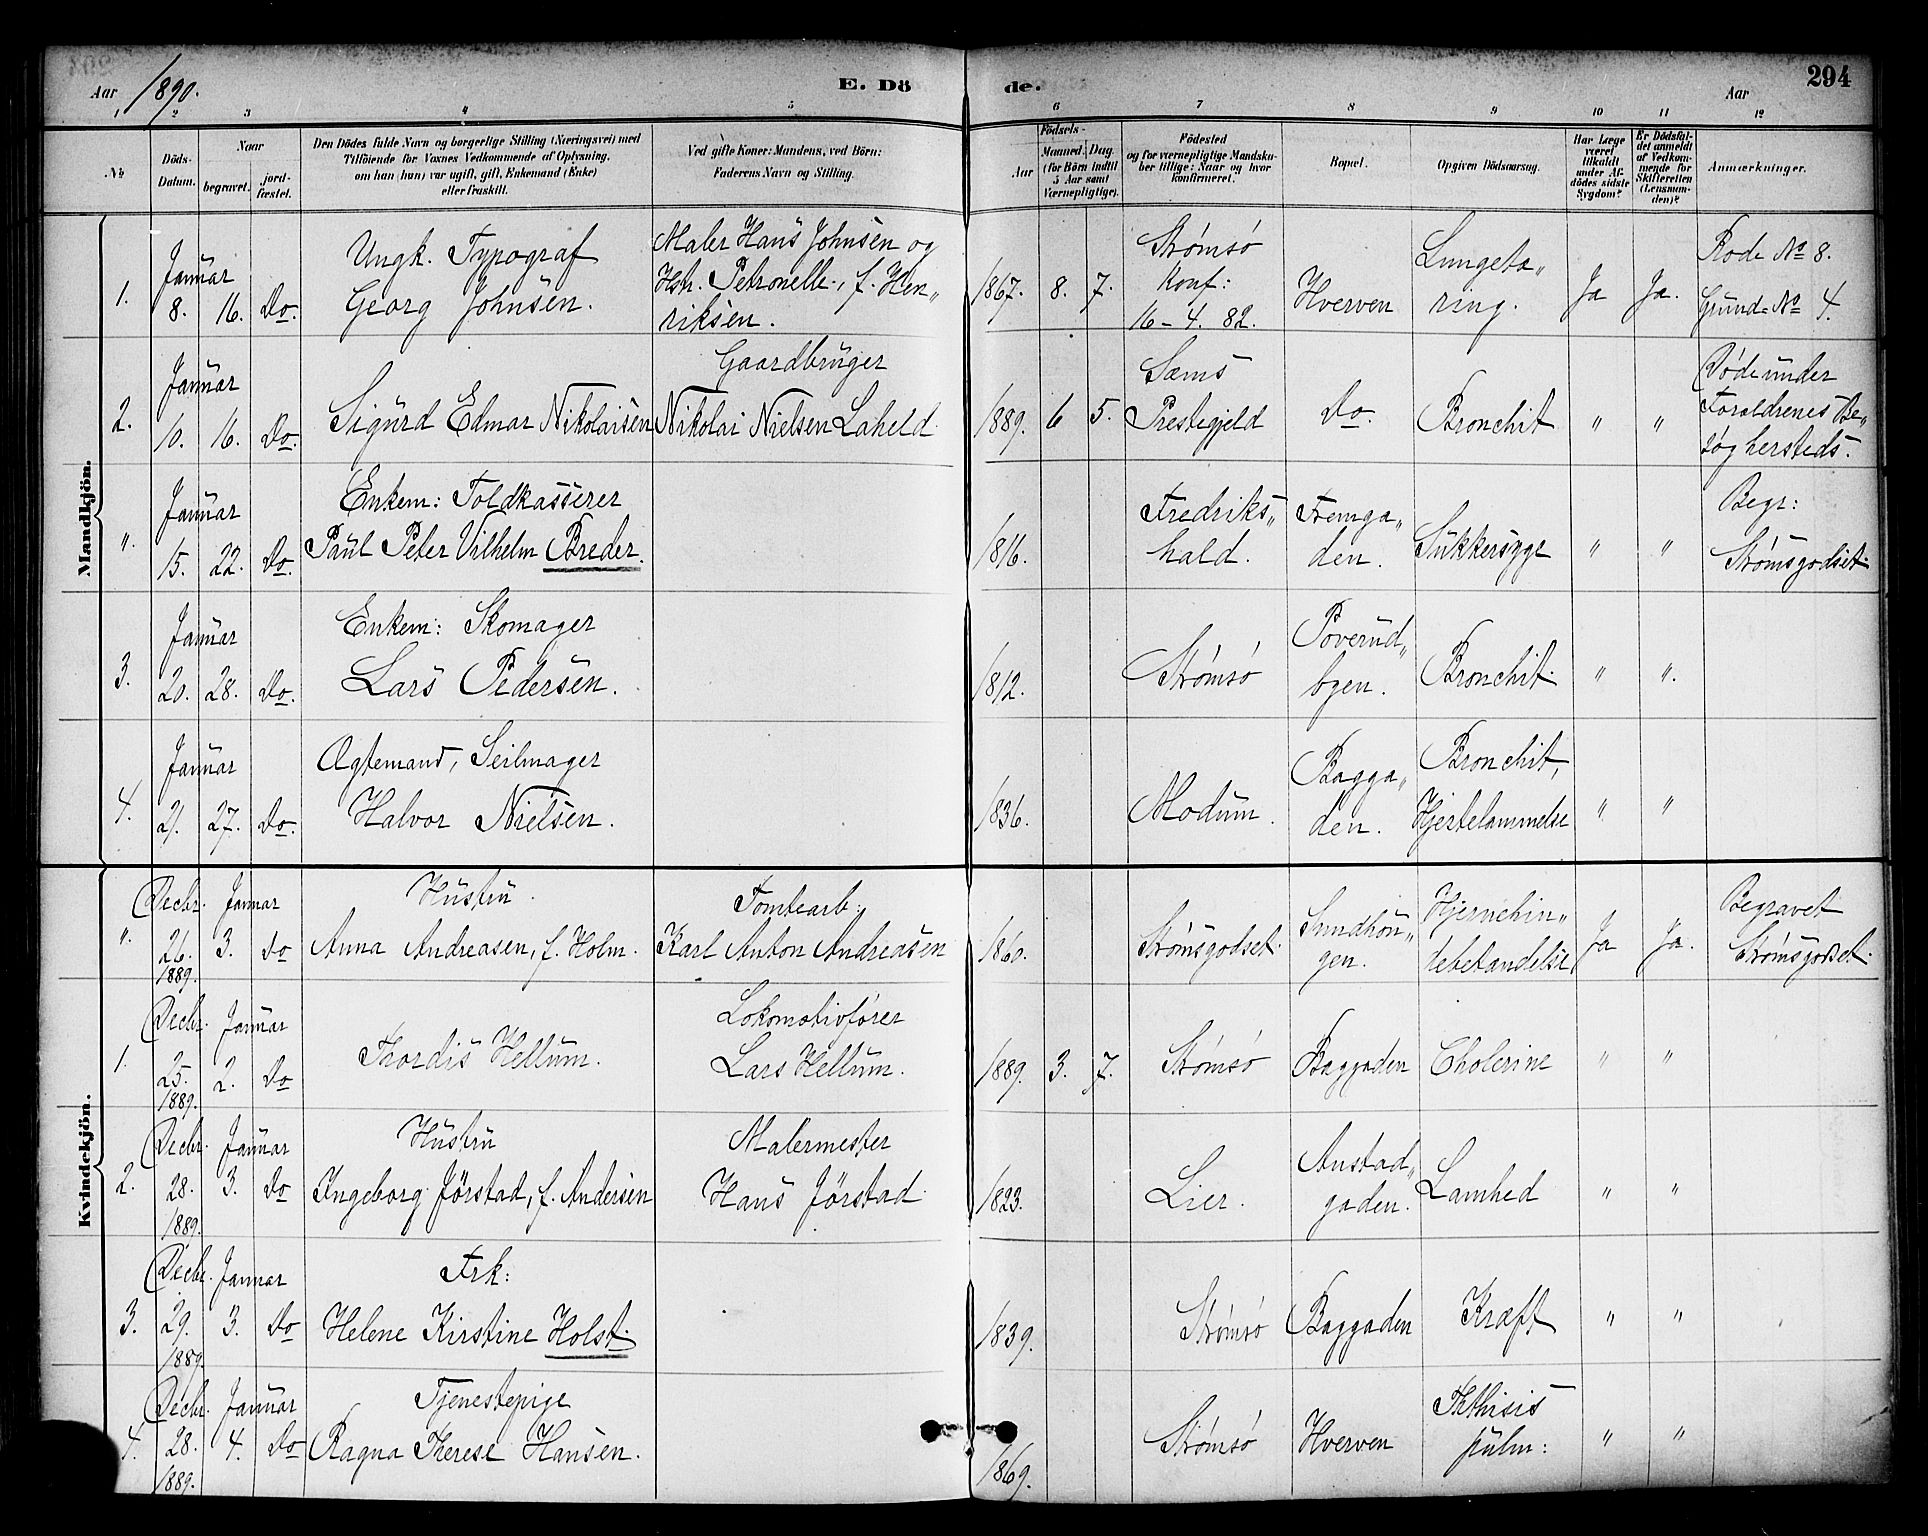 Aar 1890. E. Döde. Aar 294
1 2 3 4 5 6 7 8 9 10 11 12
№
Döds-Datum.
Naar
begravet.
jord-fæstet.
Den Dödes fulde Navn og borgerlige Stilling (Næringsvei) med
Tilföiende for Voxnes Vedkommende af Oplysning,
om han (hun) var ugift, gift, Enkemand (Enke)
eller fraskilt.
Ved gifte Koner: Mandens, ved Börn:
Faderens Navn og Stilling.
Födsels-
Aar
Maaned. Dag.
(for Börn indtil
5 Aar samt
Værnepligtige).
Födested
og for værnepligtige Mandska-
ber tillige: Naar og hvor
konfirmeret.
Bopæl.
Opgiven Dödsaarsag.
Har Læge
været
tilkaldt
under Af-
dödes sidste
Sygdom?
Er Dödsfal-
det anmeldt
af Vedkom-
mende for
Skifteretten
(Lensman-
den)?
Anmærkninger.
Mandkjön.
1. Januar 8. 16. Do.
Ungk. Typograf
Georg Johnsen.
Maler Hans Johnsen og
Hstr. Petronelle, f. Hen„
riksen.
1867. 8. 7.
Strømsø
Konf:
16-4. 82.
Hverven
Lungetæ„
ring.
Ja Ja.
Rode № 8.
Grund-№ 4.
2. Januar 10. 16. Do.
Sigurd Edmar Nikolaisen
Gaardbruger
Nikolai Nielsen Laheld
1889. 6 5.
Sems
Prestegjeld
Do.
Bronchit
„ „
Døde under
Foraldrenes Be„
søg hersteds.
„. Januar 15. 22. Do.
Enkem: Toldkasserer
Paul Peter Vilhelm Breder.
1816.
Fredriks„
hald.
Tremga„
den.
Sukkersyge
„ „
Begr:
Strømsgodset.
3. Januar 20. 28. Do.
Enkem: Skomager
Lars Pedersen.
1812.
Strømsø
Poverud„
bgen.
Bronchit.
„ „.
4. Januar 21. 27. Do.
Ægtemand, Seilmager
Halvor Nielsen.
1836.
Modum.
Bagga„
den.
Bronchit,
Hjertelammelse
„ „
Kvindekjön.
„. Decbr. 26. 1889. Januar 3. Do
Hustru.
Anna Andreasen, f. Holm.
Tomtearb.
Karl Anton Andreasen
1860.
Strømsgodset.
Sundhou„
gen.
Hjernehin„
debetændelse
Ja Ja.
Begravet
Strømsgodset.
1. Decbr. 25. 1889. Januar 2. Do
Thordis Hellum.
Lokomotivfører
Lars Hellum.
1889. 3. 7.
Strømsø
Baggaden
Cholerine
„ „
2. Decbr. 28. 1889. Januar 3. Do
Hustru
Ingeborg Jørstad, f. Andersen
Malermester
Hans Jørstad
1823.
Lier.
Austad„
gaden.
Lamhed
„ „
3. Decbr. 29. 1889. Januar 3. Do
Frk:
Helene Kirstine Holst.
1839.
Strømsø
Baggaden
Kræft
„ „
4. Decbr. 28. 1889. Januar 4. Do
Tjenestepige
Ragna Therese Hansen.
1869.
Strømsø
Hverven
Phthisis
pulm:
„ „